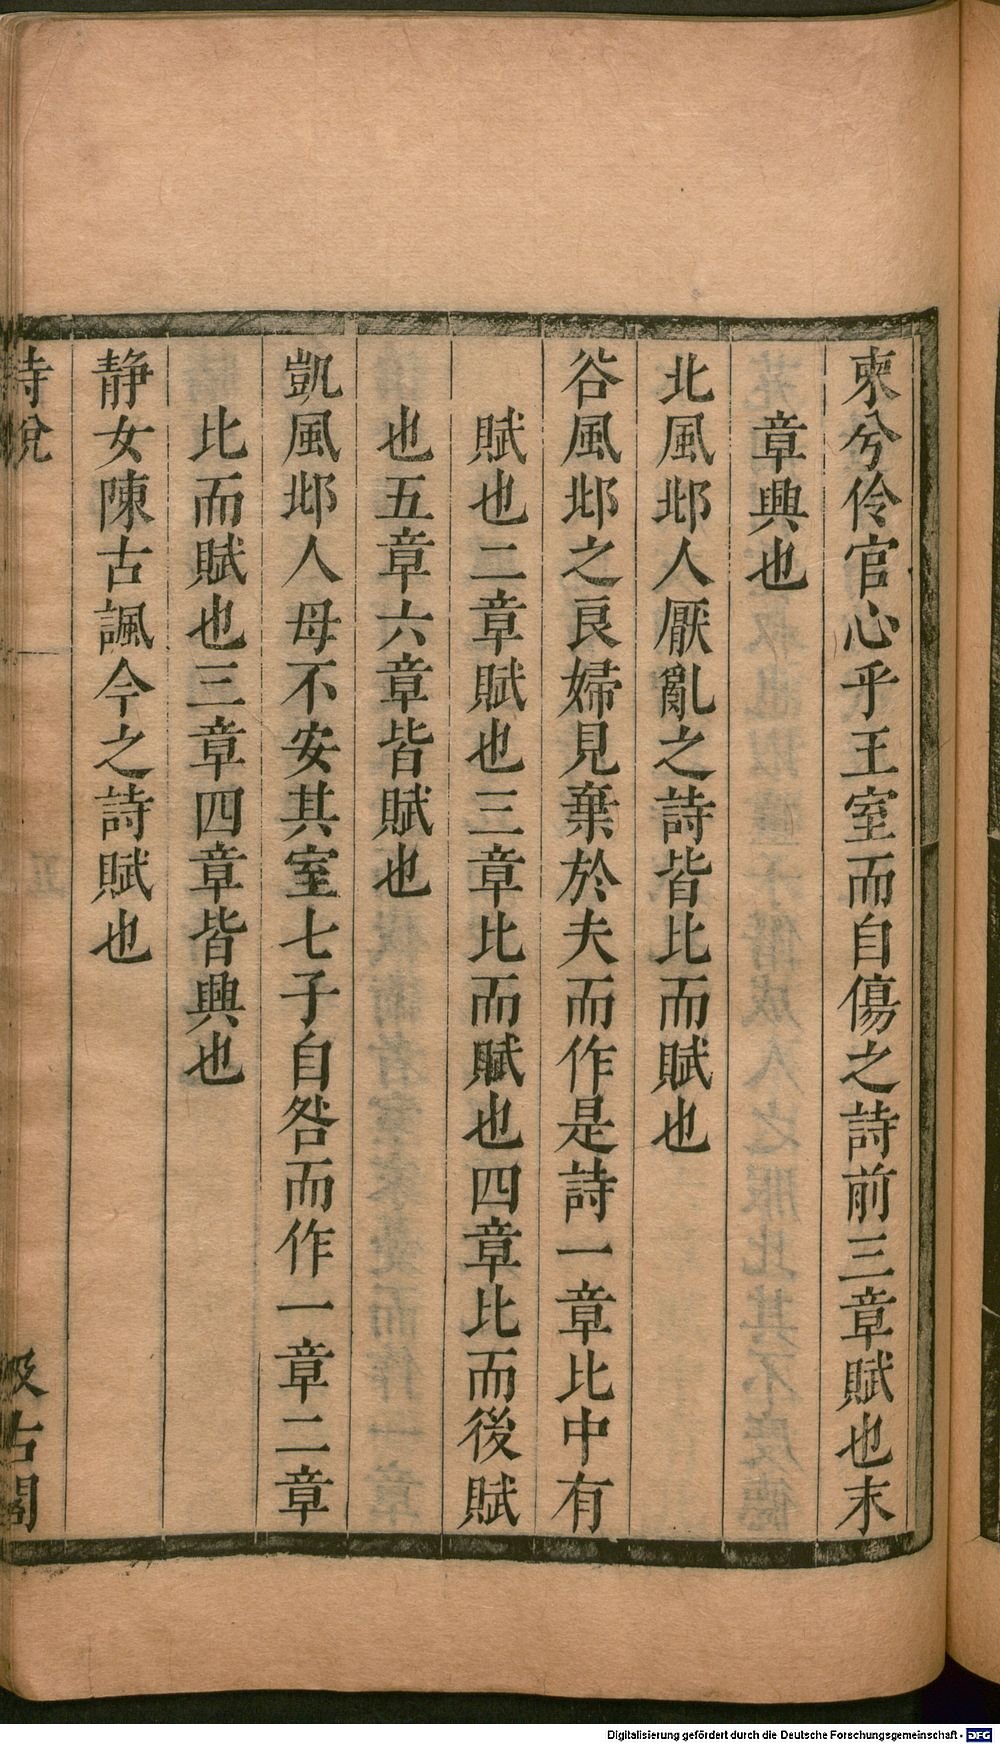 柬兮伶官心乎王室而自傷之詩前三章賦也末
章興也
北風邶人厭亂之詩皆比而賦也
谷風邶之良婦見棄於夫而作是詩一章比中有
賦也二章賦也三章比而賦也四章比而後賦
也五章六章皆賦也
凱風邶人母不安其室七子自咎而作一章二章
比而賦也三章四章皆興也
靜女陳古諷今之詩賦也
詩說
汲古閣
Digitalisierung gefördert durch die Deutsche Forschungsgemeinschaft - DFG